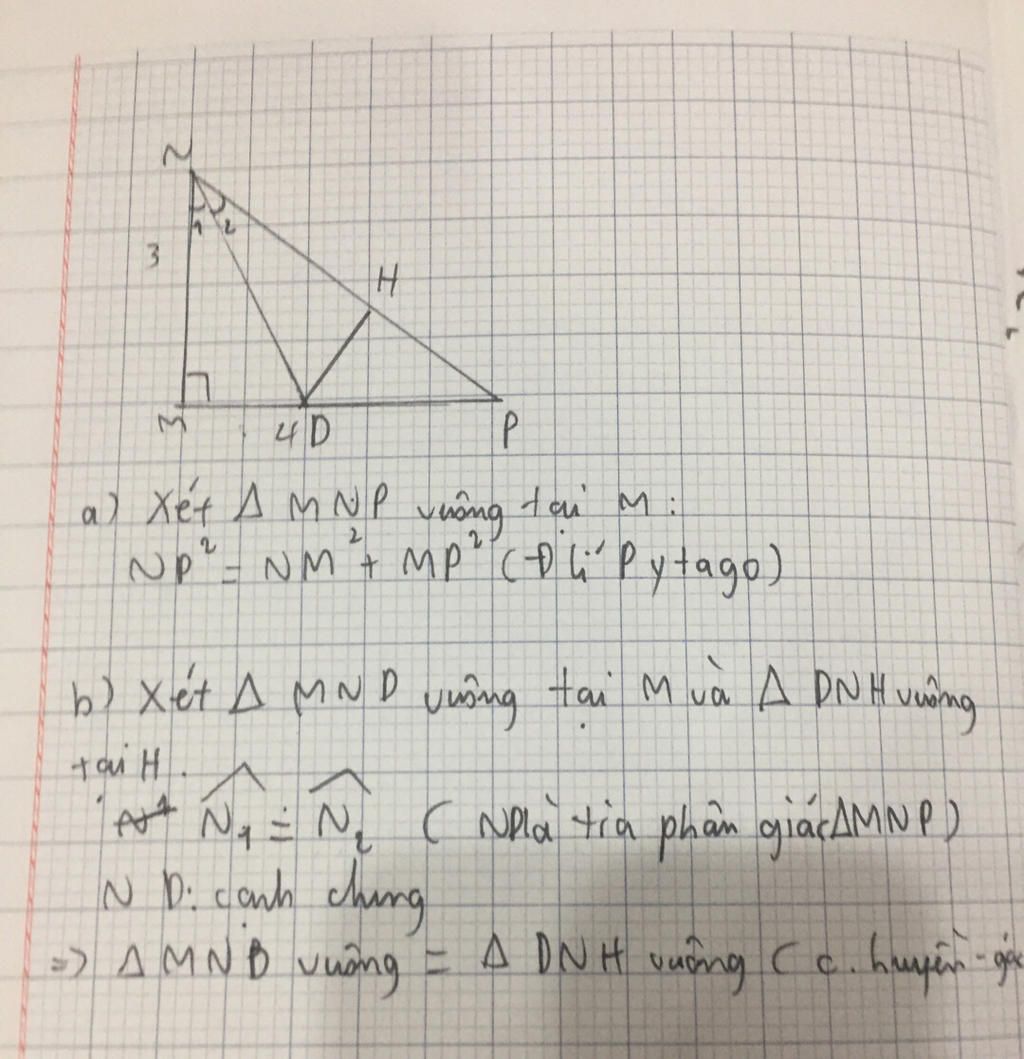 N
1 2
3
H
M
4 D
P
a) Xét Δ MNP vuông tại M:
NP² = NM² + MP² (Đ lí Pytago)
b) Xét Δ MND vuông tại M và Δ DNH vuông
tại H.
N₁ = N₂ ( ND là tia phân giác ΔMNP)
ND: cạnh chung
=> Δ MND vuông = Δ DNH vuông ( c. huyền - góc